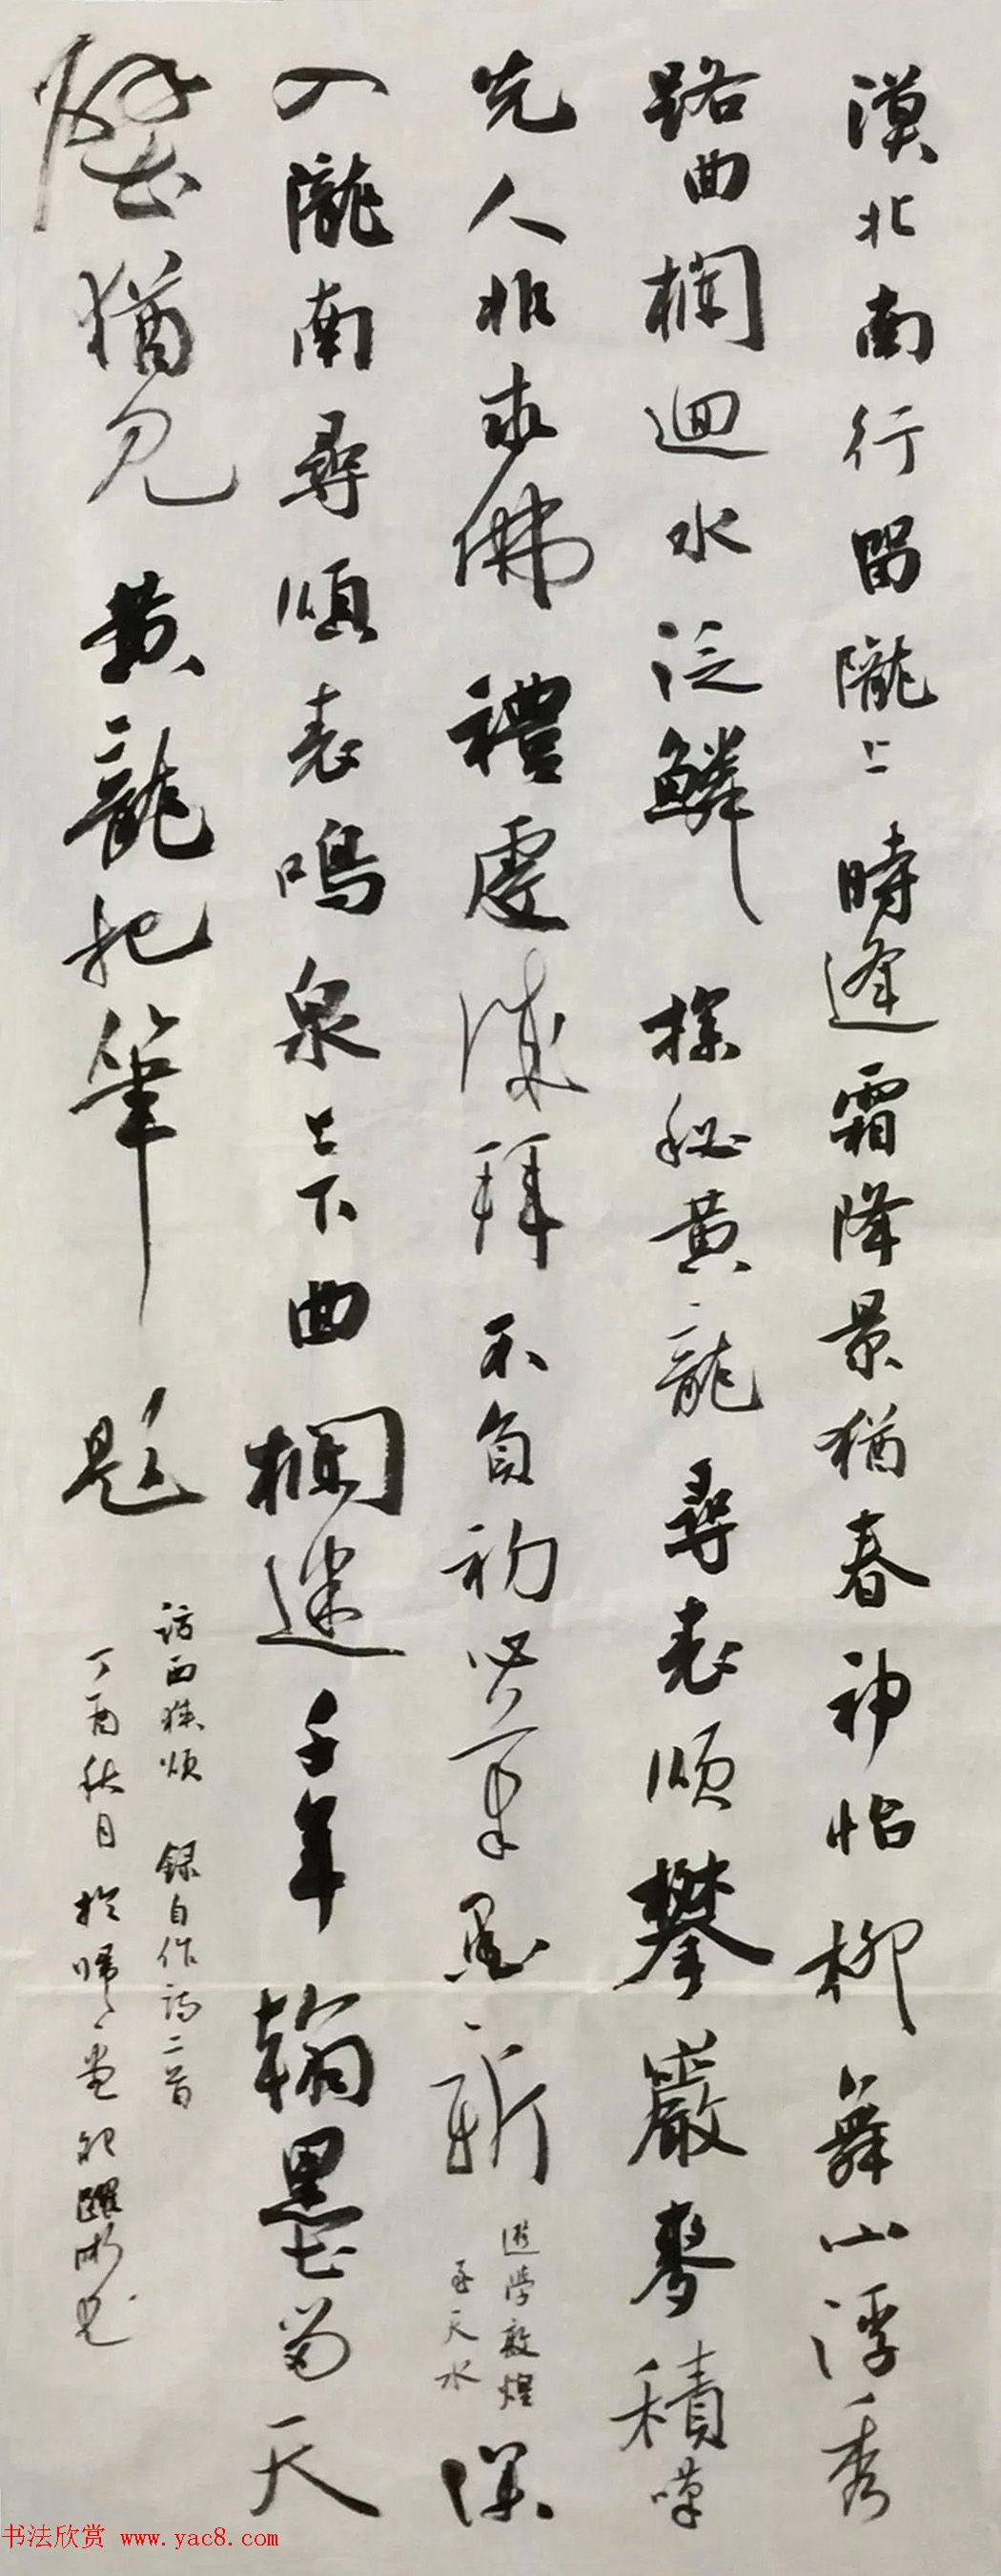 漠北南行留隴上時逢霜降景猶春神怡柳舞山浮秀
路曲欄迴水泛鱗探秘黃龍尋表順攀巖麥積嘆
先人非求佛禮處深拜不負初學筆墨新
遊學敦煌
至天水
深
入隴南尋順表鳴泉上下曲欄迷千年翰墨留天
壁猶見黃龍把筆題
訪西狹頌 錄自作詩二首
丁酉秋日於 堂 躍
书法欣赏 www.yac8.com